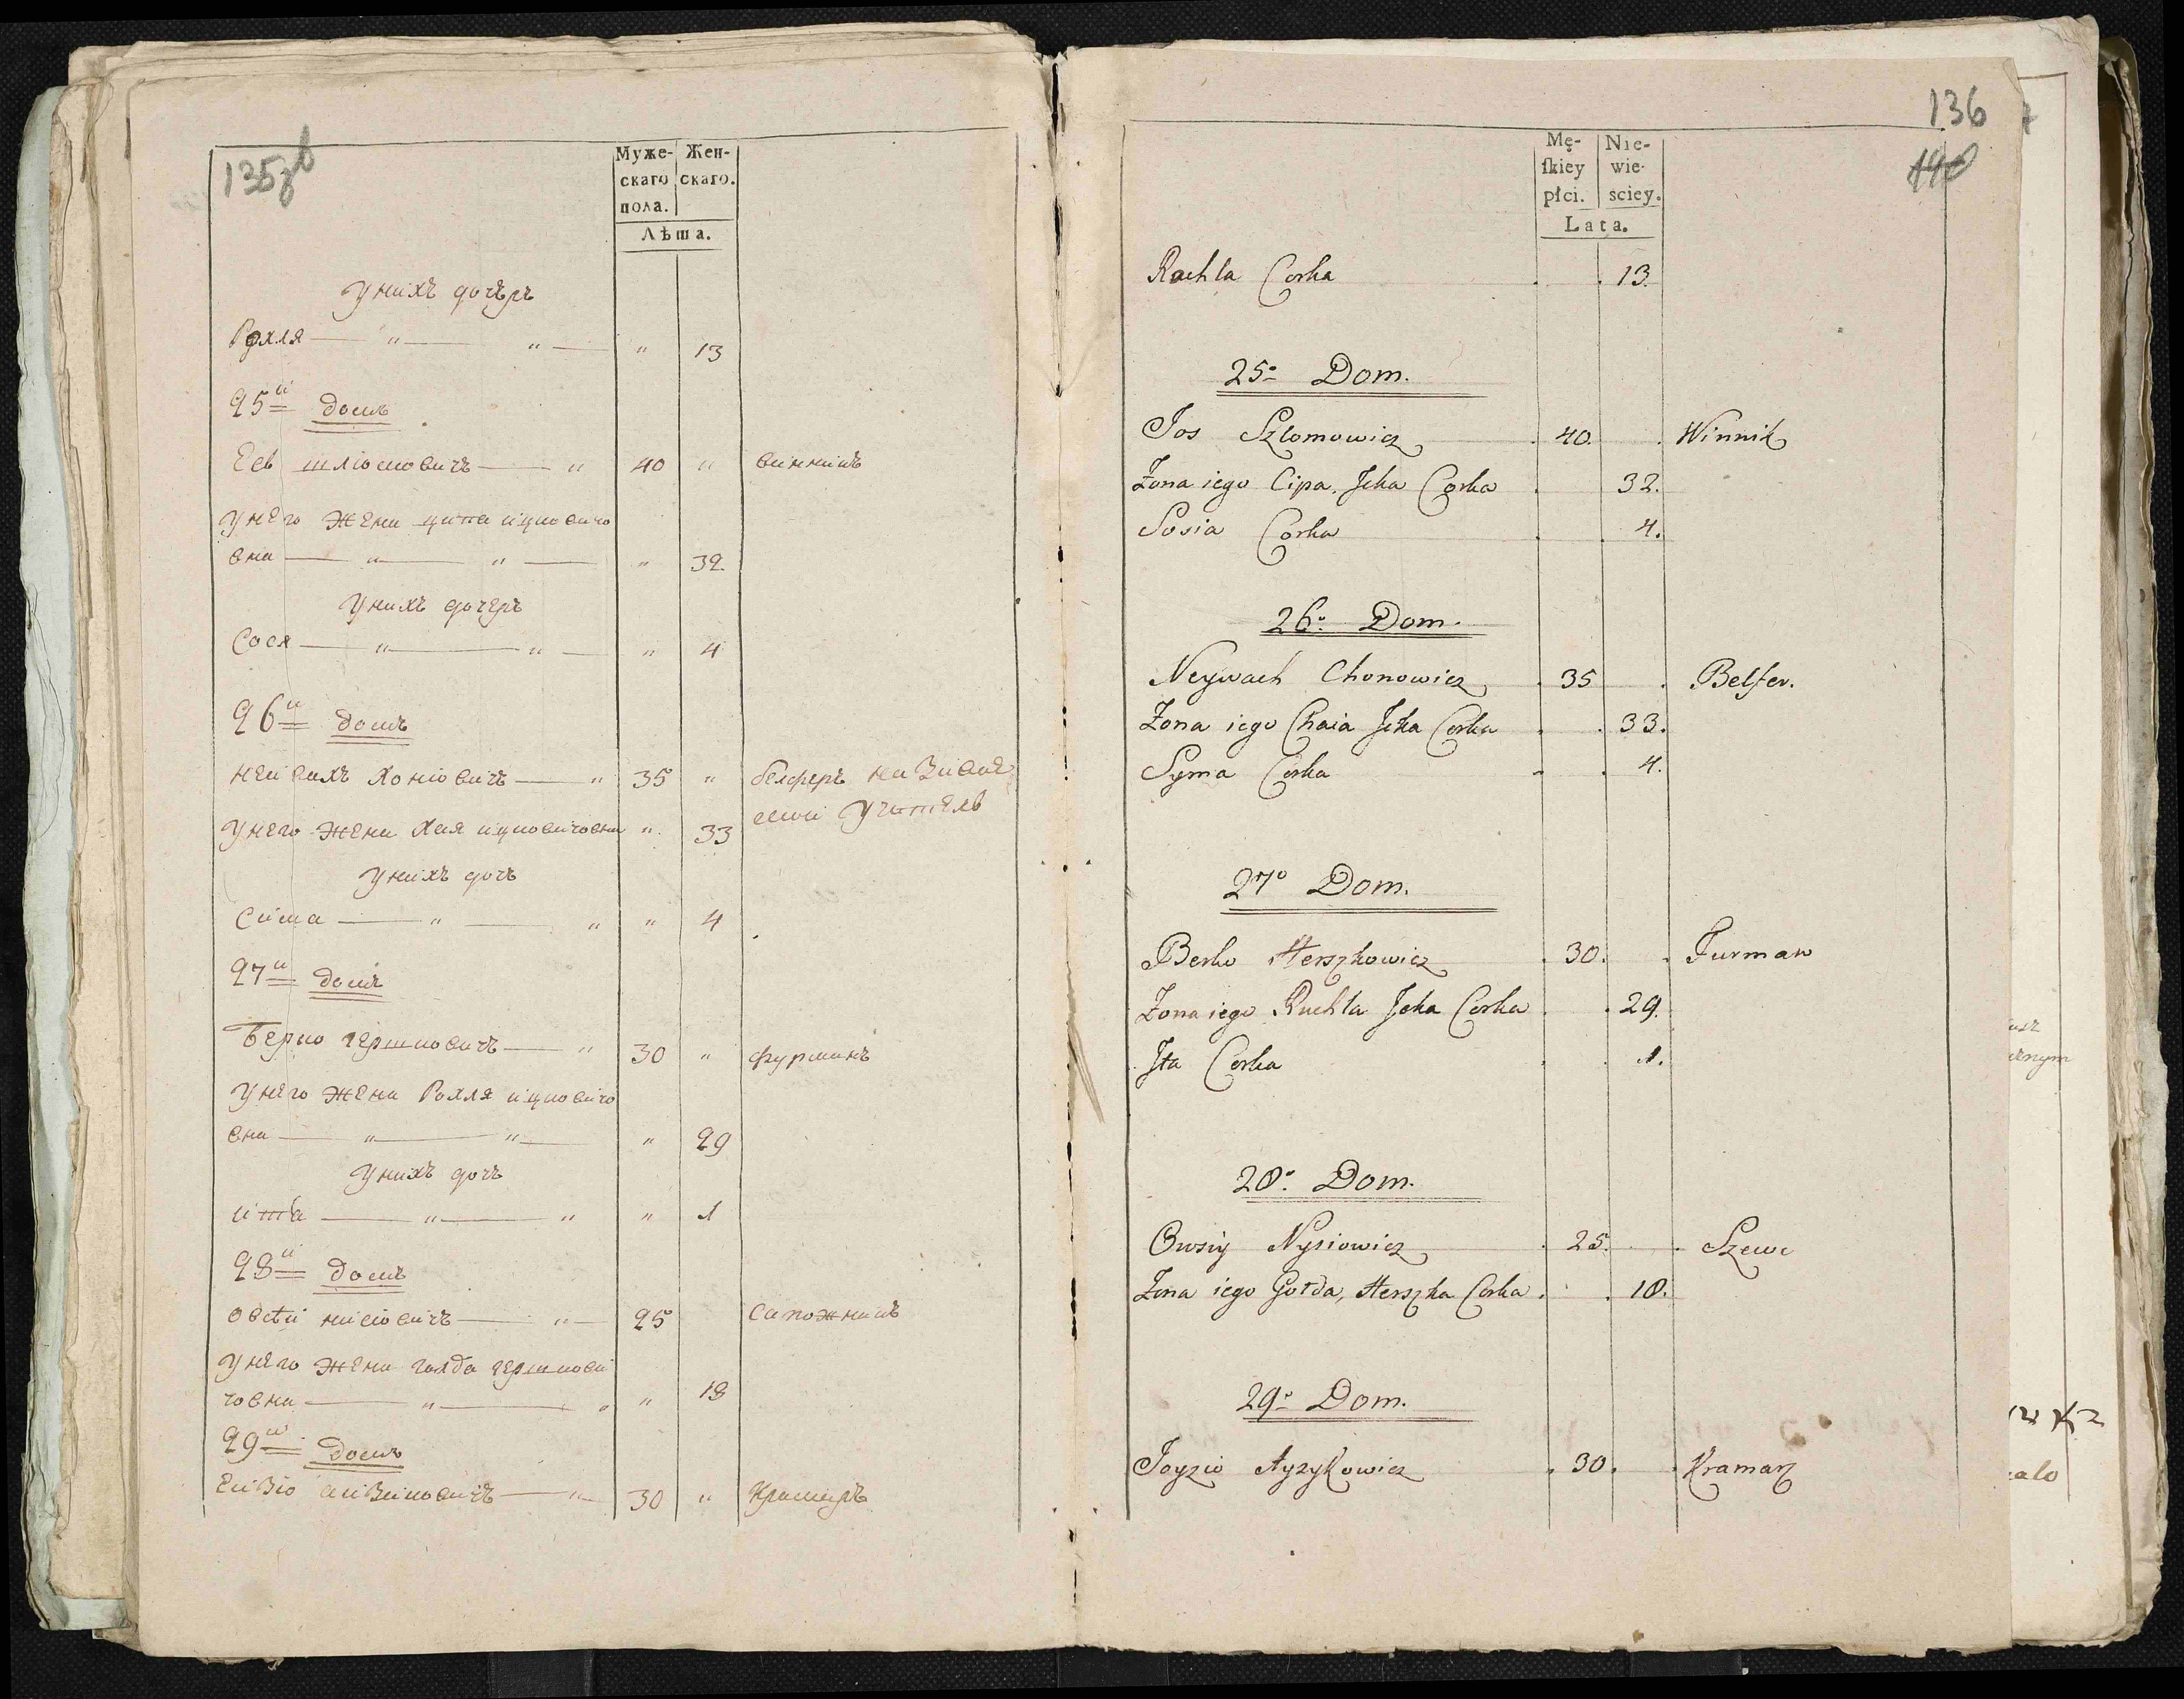 135зв
Муже- Жен-
скаго скаго.
пола.
Лѣта.
У нихъ дочерь
Рохля — " — " — " 13
25й домъ
Есь шліомовичъ — " 40 " винникъ
У него жена ципа ицковичо
вна — " — " — " 32
У нихъ дочерь
Сося — " — " — " 4
26й домъ
нейвахъ хоніовичъ — " 35 " белферъ называе
У него жена хая ицковичовна " 33 мой учитель
У нихъ дочь
Сима — " — " " 4
27й домъ
Берко гершковичъ — " 30 " фурманъ
У него жена Рохля ицковичо
вна — " — " — " 29
У нихъ дочь
ита — " — " " 1
28й домъ
овсѣй нисіовичъ — " — 25 сапожникъ
У него жена голда гершкови
човна — " — " " 18
29й домъ
Ейзіо айзиковичъ — " — 30 " Крамаръ
136
140
Mę- Nie-
ſkiey wie-
płci. sciey.
Lata.
Rachla Corka . . 13.
25o Dom.
Jos Szlomowicz . 40. . Winnik
Żona iego Cipa, Jcka Corka . 32.
Sosia Corka . . 4.
26o Dom.
Neywach Chonowicz . 35 . Belfer.
Żona iego Chaia Jcka Corka . . 33.
Syma Corka . . 4.
27o Dom.
Berko Herszkowicz . 30. . Furman
Żona iego Ruchla Jcka Corka . . 29.
Jta Corka . . 1.
28o Dom.
Owsiy Nysiowicz . 25. . Szewc
Żona iego Gołda, Herszka Corka . . 18.
29o Dom.
Joyzio Ayzykowicz . 30. . Kramarz